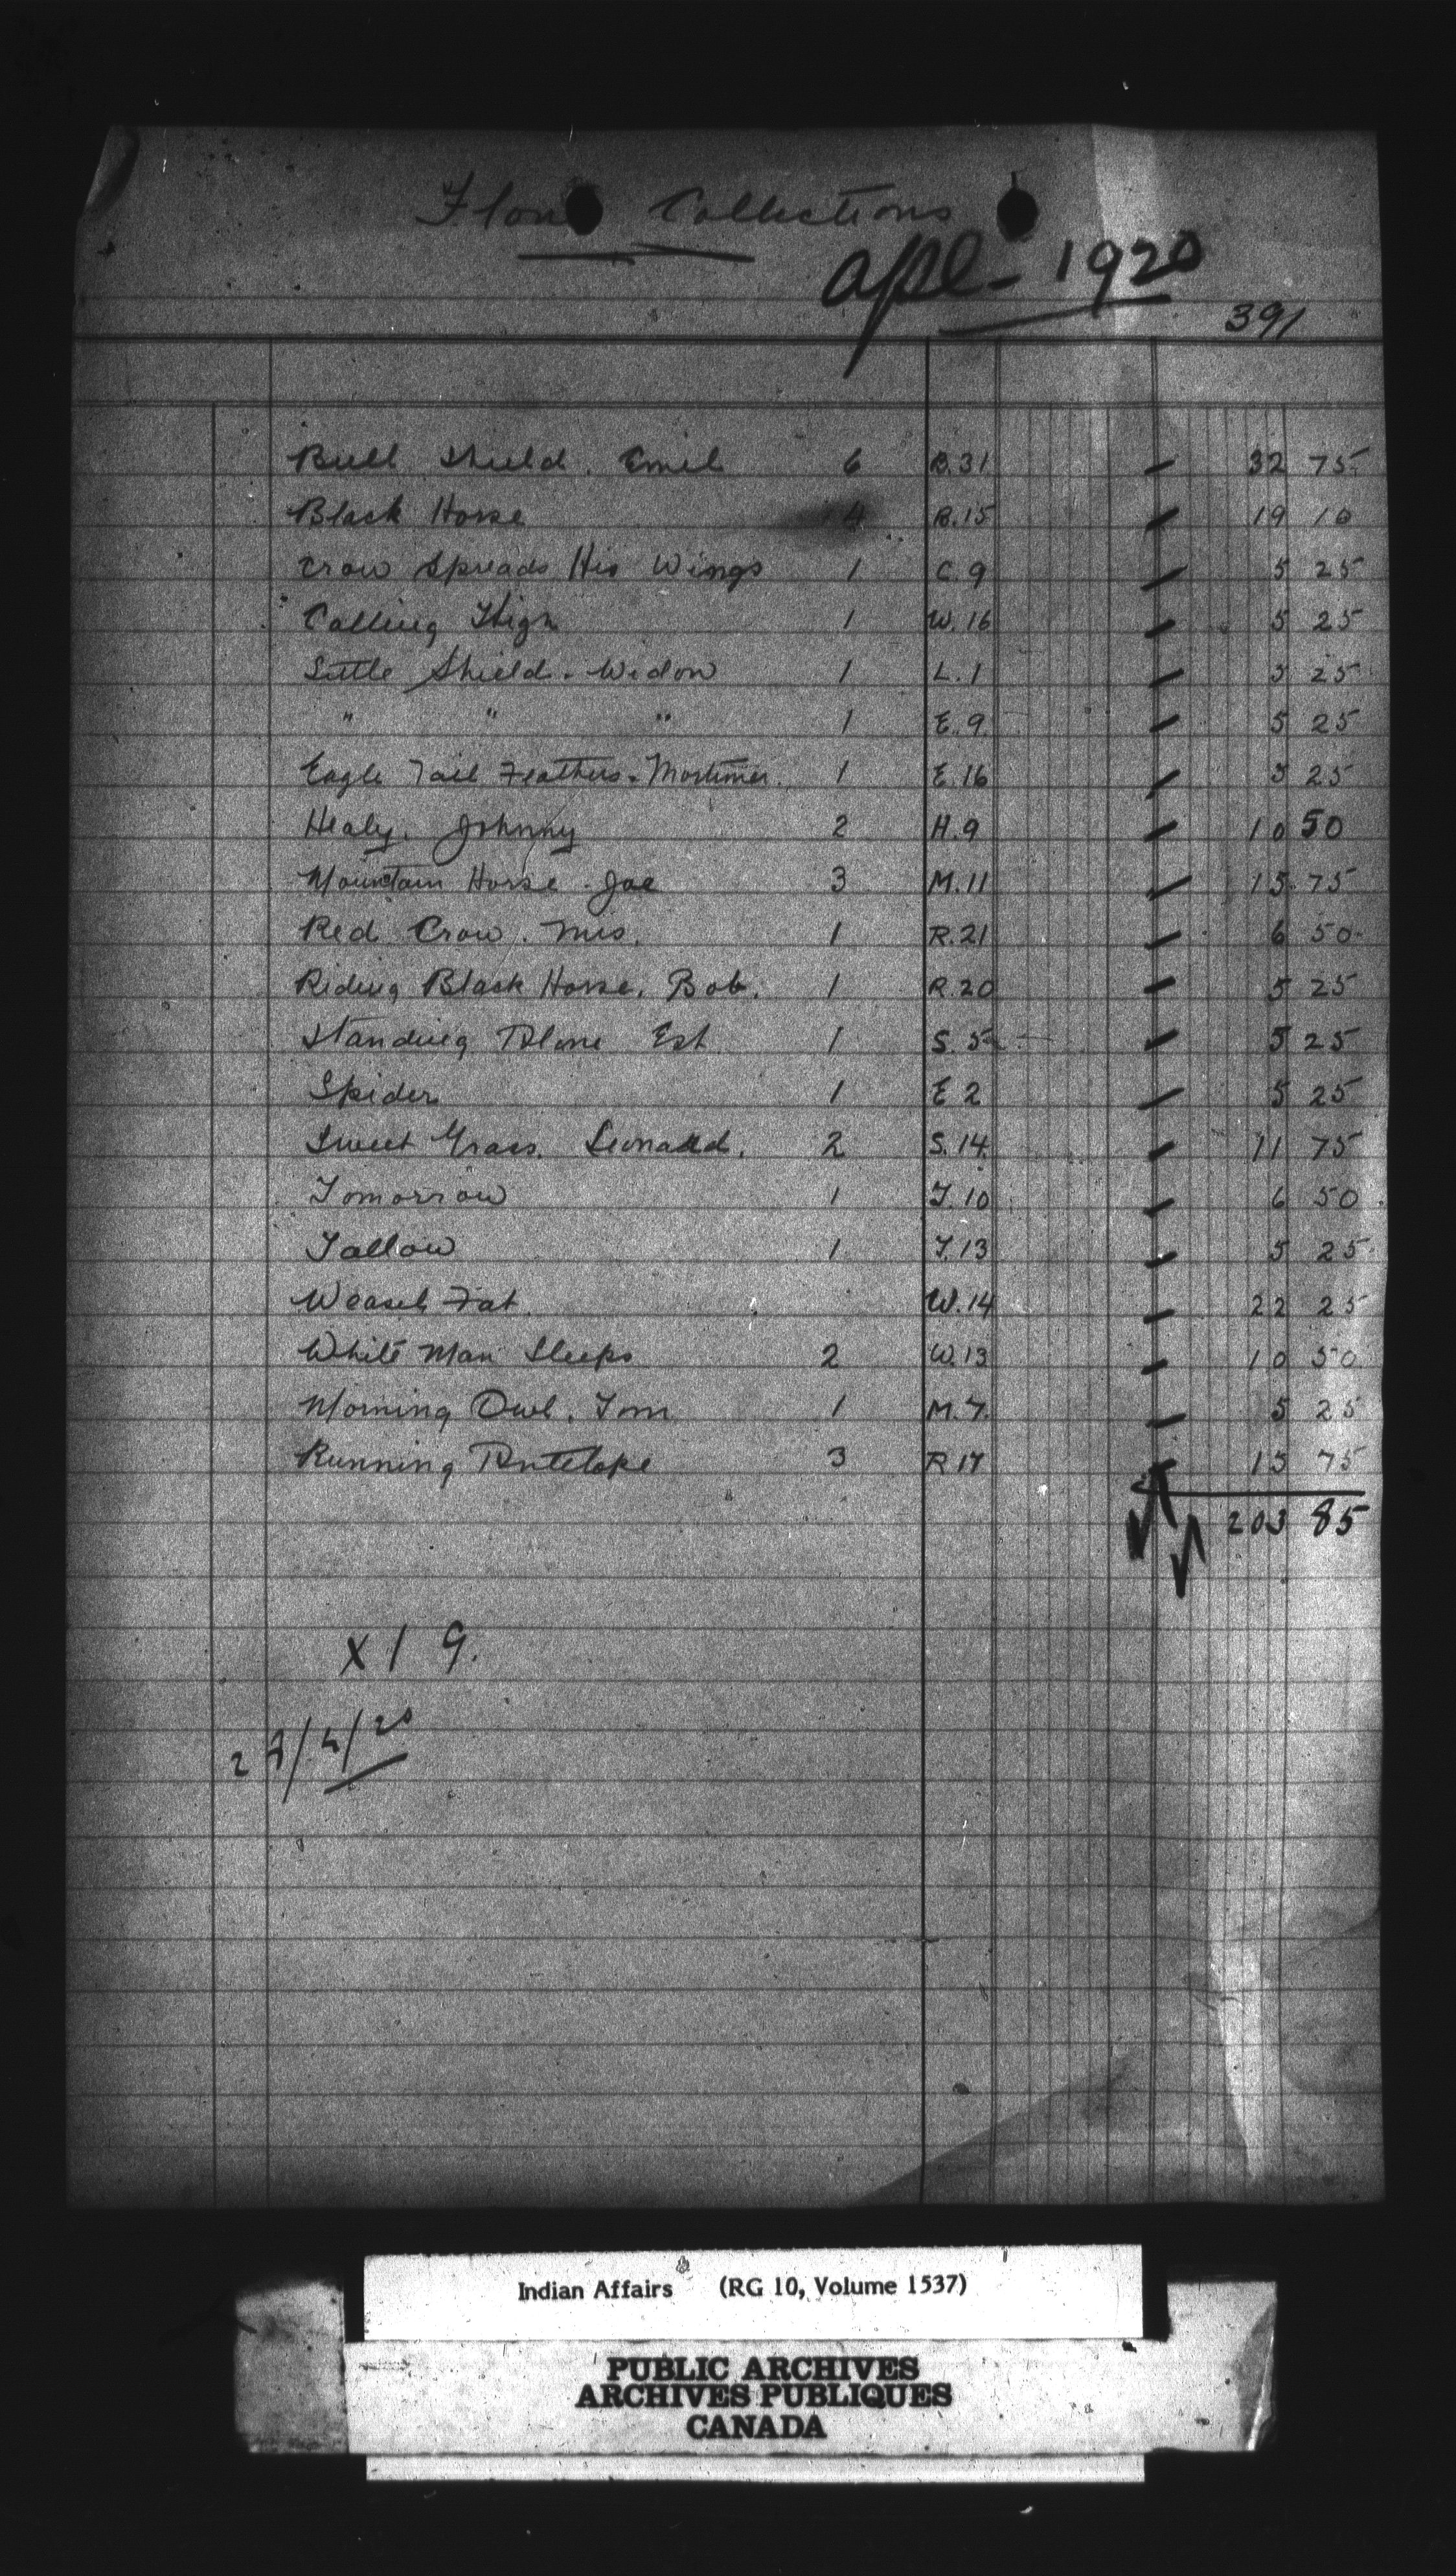 Flour Collections
Apl - 1920
391
Bull Shield. Emil 6 B.31 32 75
Black Horse 4 B.15 19 10
Crow Spreads His Wings 1 C.9 5 25
Calling High 1 W.16 5 25
Little Shield. Widow 1 L.1 5 25
" " " 1 E.9. 5 25
Eagle Tail Feathers. Mortimer. 1 E.16 5 25
Healy. Johnny 2 H.9 10 50
Mountain Horse. Joe 3 M.11 15.75
Red Crow. Mrs. 1 R.21 6 50
Riding Black Horse. Bob. 1 R.20 5 25
Standing Alone Est 1 S.5 5 25
Spider 1 E 2 5 25
Sweet Grass. Leonard. 2 S.14. 11 75
Tomorrow 1 T.10 6 50
Tallow 1 T.13 5 25
Weasel Fat. W.14 22 25
White Man Sleeps 2 W.13 10 50
Morning Owl. Tom 1 M.7. 5 25
Running Antelope 3 R 17 15 75
203 85
X 1 9.
/4/20
Indian Affairs (RG 10, Volume 1537)
PUBLIC ARCHIVES
ARCHIVES PUBLIQUES
CANADA